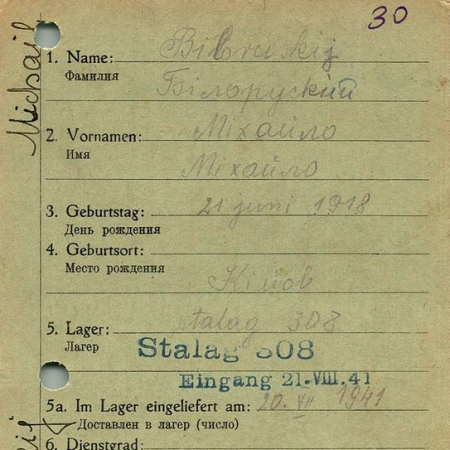 30
Michail
1. Name:
Фамилия
Білоруский
2. Vornamen: Міхайло
Имя
Міхайло
3. Geburtstag: 21 juni 1918
День рождения
4. Geburtsort:
Место рождения
5. Lager: Stalag 308
Лагер
Stalag 308
Eingang 21.VIII.41
5a. Im Lager eingeliefert am: 1941
Доставлен в лагер (число)
6. Dienstgrad: